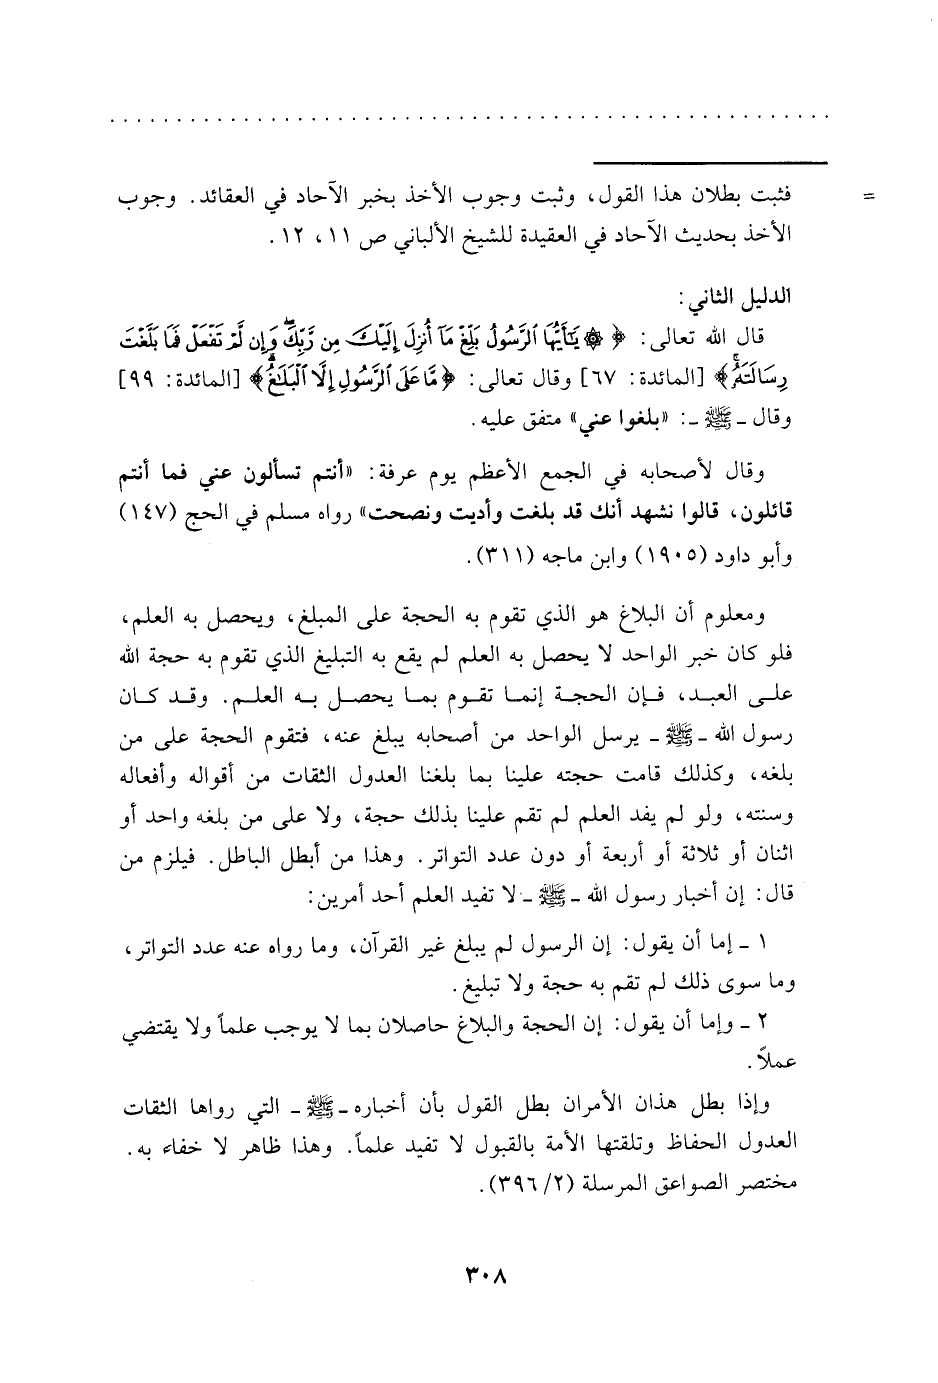 = فثبت بطلان هذا القول، وثبت وجوب الأخذ بخبر الآحاد في العقائد. وجوب
الأخذ بحديث الآحاد في العقيدة للشيخ الألباني ص ١١، ١٢.
الدليل الثاني:
قال الله تعالى: ﴿ ۞ يَـٰٓأَيُّهَا ٱلرَّسُولُ بَلِّغْ مَآ أُنزِلَ إِلَيْكَ مِن رَّبِّكَ ۖ وَإِن لَّمْ تَفْعَلْ فَمَا بَلَّغْتَ
رِسَالَتَهُۥ ۚ﴾ [المائدة: ٦٧] وقال تعالى: ﴿مَّا عَلَى ٱلرَّسُولِ إِلَّا ٱلْبَلَـٰغُ ۗ﴾ [المائدة: ٩٩]
وقال ـ ﷺ ـ: «بلغوا عني» متفق عليه.
وقال لأصحابه في الجمع الأعظم يوم عرفة: «أنتم تسألون عني فما أنتم
قائلون، قالوا نشهد أنك قد بلغت وأديت ونصحت» رواه مسلم في الحج (١٤٧)
وأبو داود (١٩٠٥) وابن ماجه (٣١١).
ومعلوم أن البلاغ هو الذي تقوم به الحجة على المبلغ، ويحصل به العلم،
فلو كان خبر الواحد لا يحصل به العلم لم يقع به التبليغ الذي تقوم به حجة الله
على العبد، فإن الحجة إنما تقوم بما يحصل به العلم. وقد كان
رسول الله ـ ﷺ ـ يرسل الواحد من أصحابه يبلغ عنه، فتقوم الحجة على من
بلغه، وكذلك قامت حجته علينا بما بلغنا العدول الثقات من أقواله وأفعاله
وسنته، ولو لم يفد العلم لم تقم علينا بذلك حجة، ولا على من بلغه واحد أو
اثنان أو ثلاثة أو أربعة أو دون عدد التواتر. وهذا من أبطل الباطل. فيلزم من
قال: إن أخبار رسول الله ـ ﷺ ـ لا تفيد العلم أحد أمرين:
١ ـ إما أن يقول: إن الرسول لم يبلغ غير القرآن، وما رواه عنه عدد التواتر،
وما سوى ذلك لم تقم به حجة ولا تبليغ.
٢ ـ وإما أن يقول: إن الحجة والبلاغ حاصلان بما لا يوجب علماً ولا يقتضي
عملاً.
وإذا بطل هذان الأمران بطل القول بأن أخباره ـ ﷺ ـ التي رواها الثقات
العدول الحفاظ وتلقتها الأمة بالقبول لا تفيد علماً. وهذا ظاهر لا خفاء به.
مختصر الصواعق المرسلة (٢/ ٣٩٦).
٣٠٨